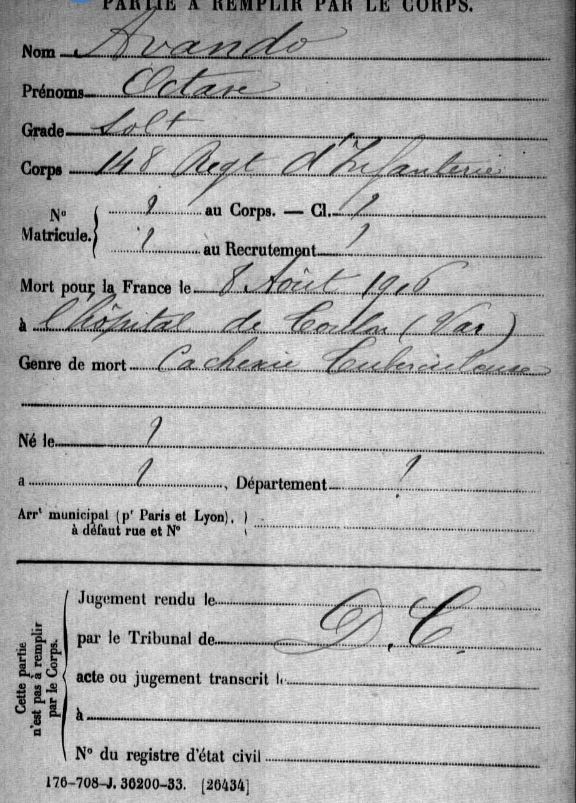 PARTIE À REMPLIR PAR LE CORPS.
Nom Avando
Prénoms Octave
Grade Solt
Corps 148 Regt d'Infanterie
N° Matricule. { ? au Corps. — Cl. ?
? au Recrutement ?
Mort pour la France le 8 Août 1916
à l'hôpital de Toulon (Var)
Genre de mort Cachexie Tuberculeuse
Né le ?
a ?, Département ?
Arrt municipal (pr Paris et Lyon), )
à défaut rue et N° (
Cette partie n'est pas à remplir par le Corps.
Jugement rendu le
par le Tribunal de D.C.
acte ou jugement transcrit l
à
N° du registre d'état civil
176-708-J. 36200-33. [26434]